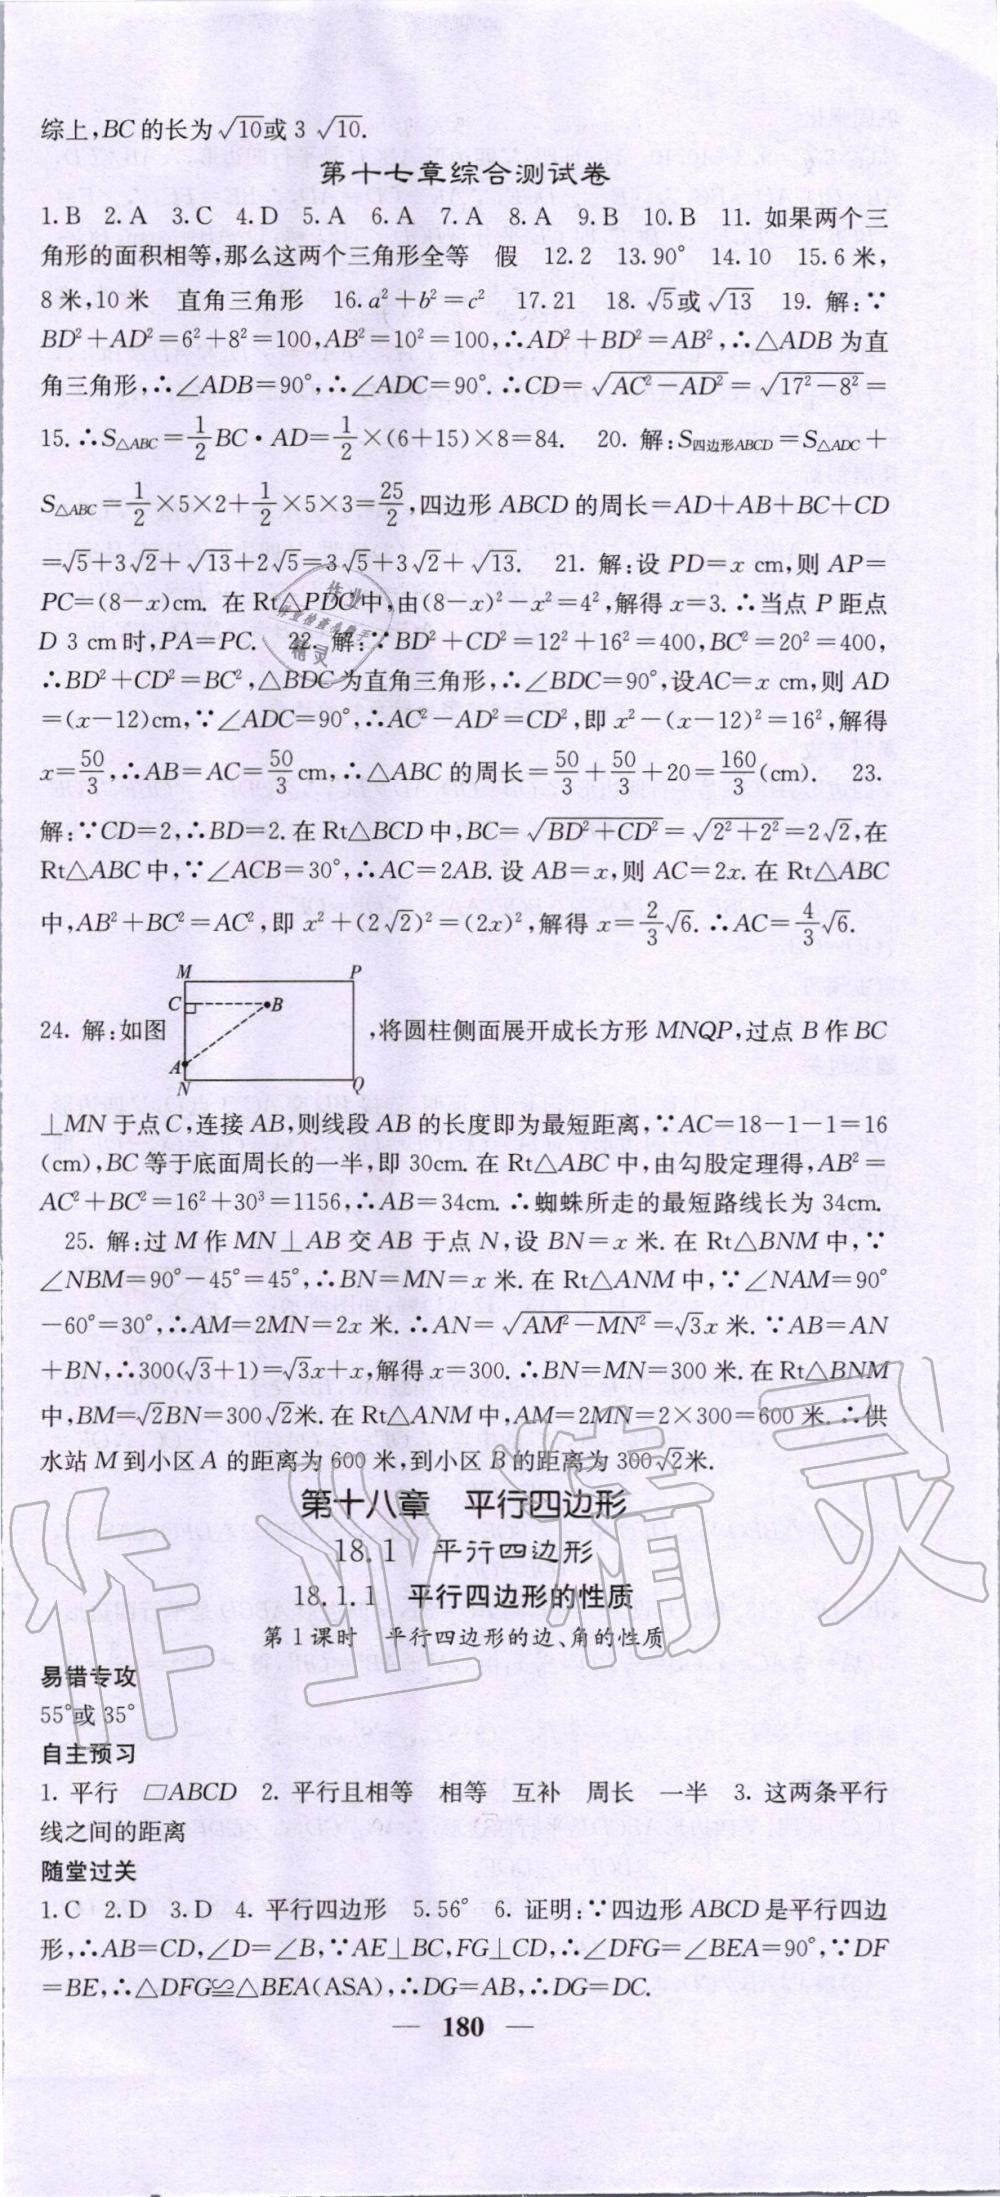 综上,BC的长为√10或3 √10.
第十七章综合测试卷
1.B 2.A 3.C 4.D 5.A 6.A 7.A 8.A 9.B 10.B 11. 如果两个三
角形的面积相等,那么这两个三角形全等 假 12.2 13.90° 14.10 15.6米,
8米,10米 直角三角形 16.a²+b²=c² 17.21 18.√5或√13 19. 解:∵
BD²+AD²=6²+8²=100,AB²=10²=100,∴AD²+BD²=AB²,∴△ADB为直
角三角形,∴∠ADB=90°,∴∠ADC=90°.∴CD=√(AC²-AD²)=√(17²-8²)=
15.∴S△ABC=1/2BC·AD=1/2×(6+15)×8=84. 20. 解:S四边形ABCD=S△ADC+
S△ABC=1/2×5×2+1/2×5×3=25/2,四边形ABCD的周长=AD+AB+BC+CD
=√5+3√2+√13+2√5=3√5+3√2+√13. 21. 解:设PD=x cm,则AP=
PC=(8-x)cm. 在Rt△PDC中,由(8-x)²-x²=4²,解得x=3.∴当点P距点
D 3 cm时,PA=PC. 22. 解:∵BD²+CD²=12²+16²=400,BC²=20²=400,
∴BD²+CD²=BC²,△BDC为直角三角形,∴∠BDC=90°,设AC=x cm,则AD
=(x-12)cm,∵∠ADC=90°,∴AC²-AD²=CD²,即x²-(x-12)²=16²,解得
x=50/3,∴AB=AC=50/3cm,∴△ABC的周长=50/3+50/3+20=160/3(cm). 23.
解:∵CD=2,∴BD=2.在Rt△BCD中,BC=√(BD²+CD²)=√(2²+2²)=2√2,在
Rt△ABC中,∵∠ACB=30°,∴AC=2AB.设AB=x,则AC=2x.在Rt△ABC
中,AB²+BC²=AC²,即x²+(2√2)²=(2x)²,解得x=2/3√6.∴AC=4/3√6.
M P
C B
24. 解:如图 ,将圆柱侧面展开成长方形MNQP,过点B作BC
A
N Q
⊥MN于点C,连接AB,则线段AB的长度即为最短距离,∵AC=18-1-1=16
(cm),BC等于底面周长的一半,即30cm.在Rt△ABC中,由勾股定理得,AB²=
AC²+BC²=16²+30³=1156,∴AB=34cm.∴蜘蛛所走的最短路线长为34cm.
25. 解:过M作MN⊥AB交AB于点N,设BN=x米.在Rt△BNM中,∵
∠NBM=90°-45°=45°,∴BN=MN=x米.在Rt△ANM中,∵∠NAM=90°
-60°=30°,∴AM=2MN=2x米.∴AN=√(AM²-MN²)=√3x米.∵AB=AN
+BN,∴300(√3+1)=√3x+x,解得x=300.∴BN=MN=300米.在Rt△BNM
中,BM=√2BN=300√2米.在Rt△ANM中,AM=2MN=2×300=600米.∴供
水站M到小区A的距离为600米,到小区B的距离为300√2米.
第十八章 平行四边形
18.1 平行四边形
18.1.1 平行四边形的性质
第1课时 平行四边形的边、角的性质
易错专攻
55°或35°
自主预习
1. 平行 □ABCD 2. 平行且相等 相等 互补 周长 一半 3. 这两条平行
线之间的距离
随堂过关
1.C 2.D 3.D 4. 平行四边形 5.56° 6. 证明:∵四边形ABCD是平行四边
形,∴AB=CD,∠D=∠B,∵AE⊥BC,FG⊥CD,∴∠DFG=∠BEA=90°,∵DF
=BE,∴△DFG≌△BEA(ASA),∴DG=AB,∴DG=DC.
— 180 —
作业精灵